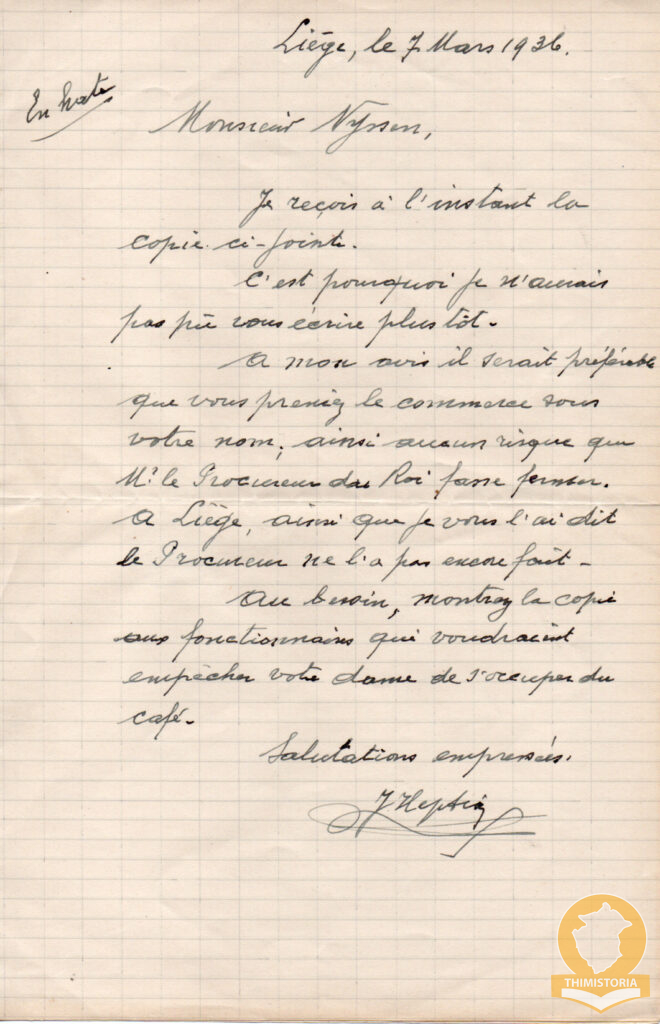 Liége, le 7 Mars 1936.
En hate
Monsieur Nyssen,
Je reçois à l'instant la
copie ci-jointe.
C'est pourquoi je n'aurais
pas pû vous écrire plus tôt.
A mon avis il serait préférable
que vous preniez le commerce sous
votre nom, ainsi aucun risque que
Mr. le Procureur du Roi fasse fermer.
A Liége, ainsi que je vous l'ai dit
le Procureur ne l'a pas encore fait -
Au besoin, montrez la copie
aux fonctionnaires qui voudraient
empêcher votre dame de s'occuper du
café.
Salutations empressées.
THIMISTORIA